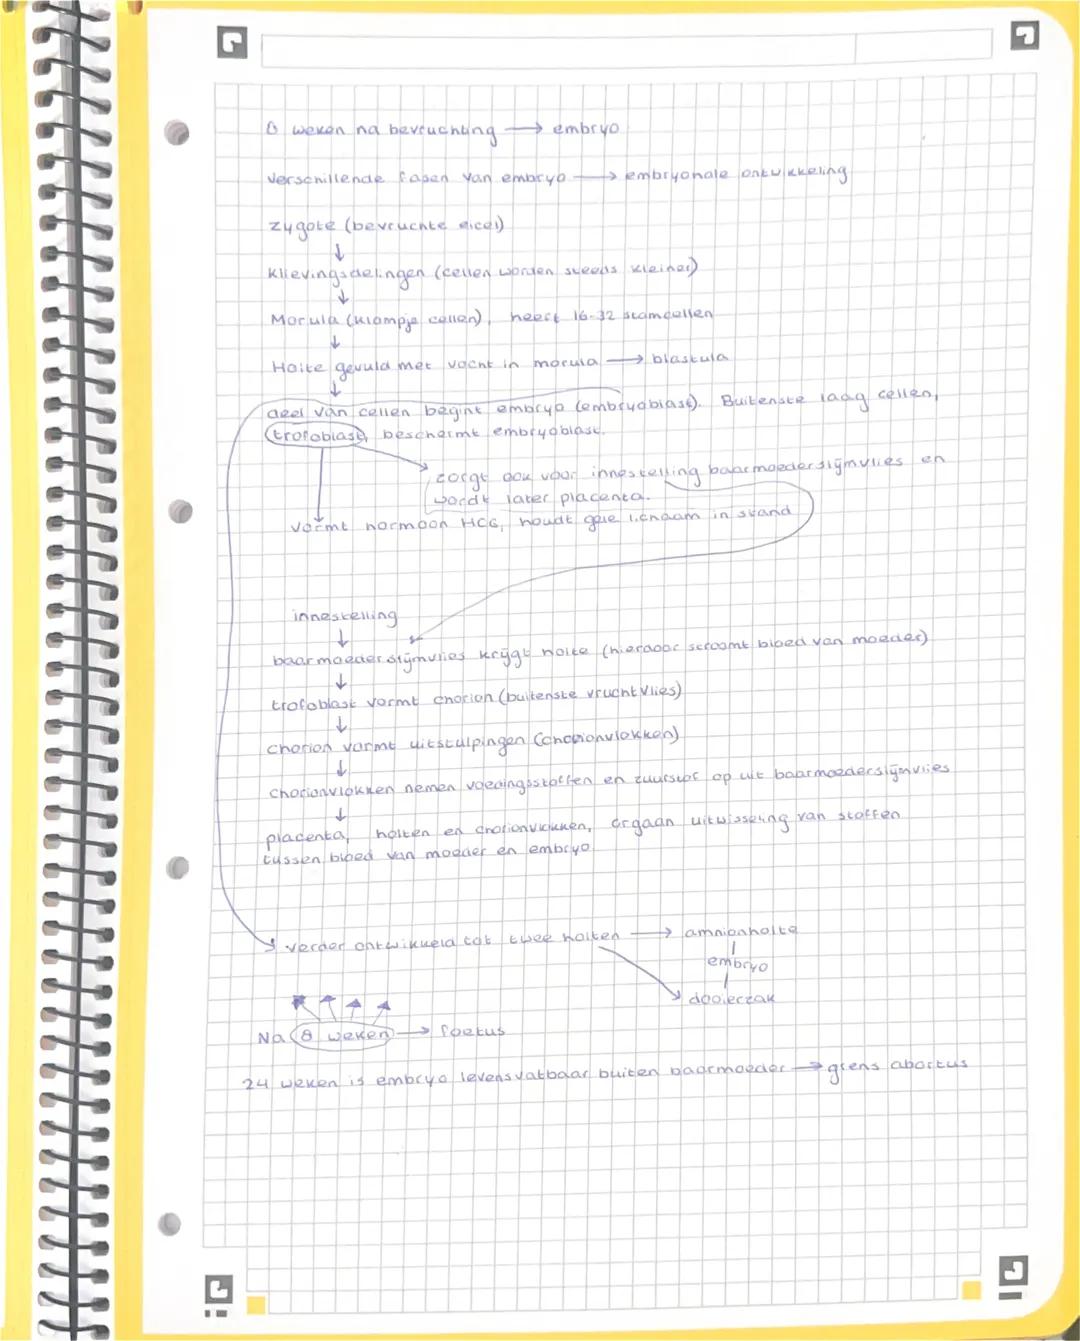 8 weken na bevruchting → embryo
Verschillende fasen van embryo → embryonale ontwikkeling
zygote (bevruchte eicel)
↓
Klievingsdelingen (cellen worden steeds kleiner)
↓
Morula (klompje cellen), heeft 16-32 stamcellen
↓
Holte gevuld met vocht in morula → blastula
↓
deel van cellen begint embryo (embryoblast). Buitenste laag cellen,
trofoblast, beschermt embryoblast.
zorgt ook voor innesteling baarmoederslijmvlies en
wordt later placenta.
vormt hormoon HCG, houdt gele lichaam in stand
innesteling
↓
baarmoederslijmvlies krijgt holte (hierdoor stroomt bloed van moeder)
↓
trofoblast vormt chorion (buitenste vruchtvlies)
↓
chorion vormt uitstulpingen (chorionvlokken)
↓
chorionvlokken nemen voedingsstoffen en zuurstof op uit baarmoederslijmvlies
↓
placenta, holten en chorionvlokken, orgaan uitwisseling van stoffen
tussen bloed van moeder en embryo
verder ontwikkeld tot twee holten → amnionholte
embryo
dooierzak
Na 8 weken → foetus
24 weken is embryo levensvatbaar buiten baarmoeder → grens abortus